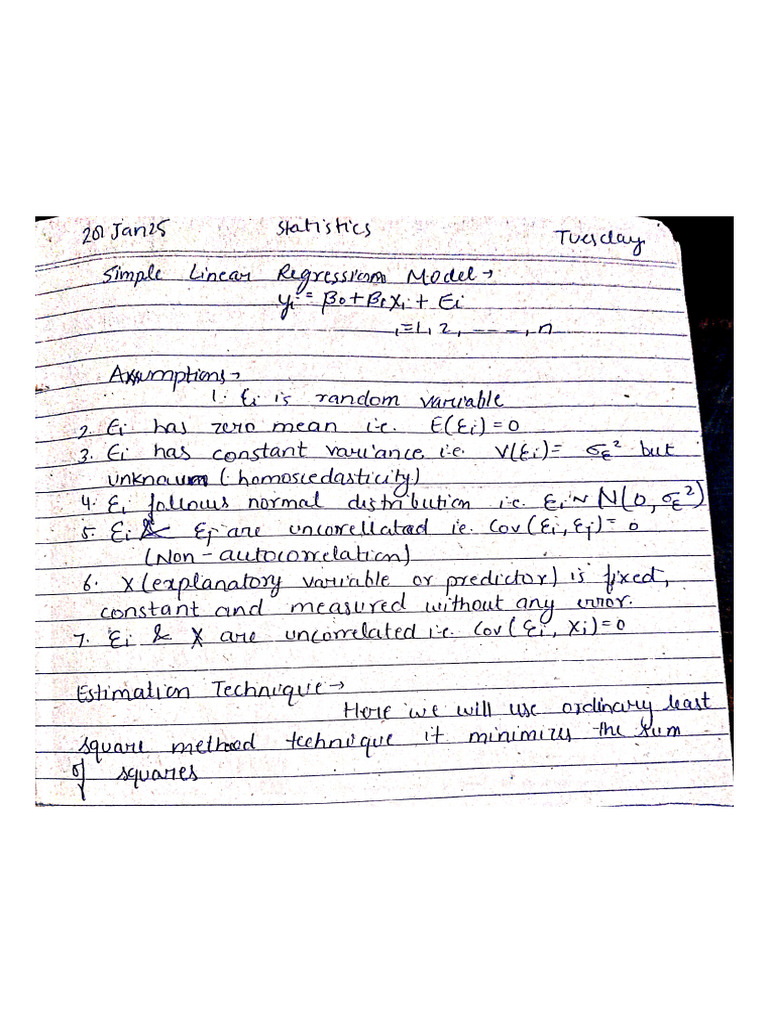 Jan25 Statistics Tuesday
Simple Linear Regression Model →
yᵢ = β₀ + β₁xᵢ + Ɛᵢ
i=1, 2, ----, n
Assumptions →
1. Ɛᵢ is random variable
2. Ɛᵢ has zero mean i.e. E(Ɛᵢ) = 0
3. Ɛᵢ has constant variance i.e. V(Ɛᵢ) = σ_Ɛ² but
unknown (homoscedasticity)
4. Ɛᵢ follows normal distribution i.e. Ɛᵢ ~ N(0, σ_Ɛ²)
5. Ɛᵢ & Ɛⱼ are uncorrellated ie. Cov(Ɛᵢ, Ɛⱼ) = 0
(Non-autocorrelation)
6. X (explanatory variable or predictor) is fixed,
constant and measured without any error.
7. Ɛᵢ & X are uncorrelated i.e. Cov(Ɛᵢ, Xᵢ) = 0
Estimation Technique →
Here we will use ordinary least
square method technique it minimizes the sum
of squares